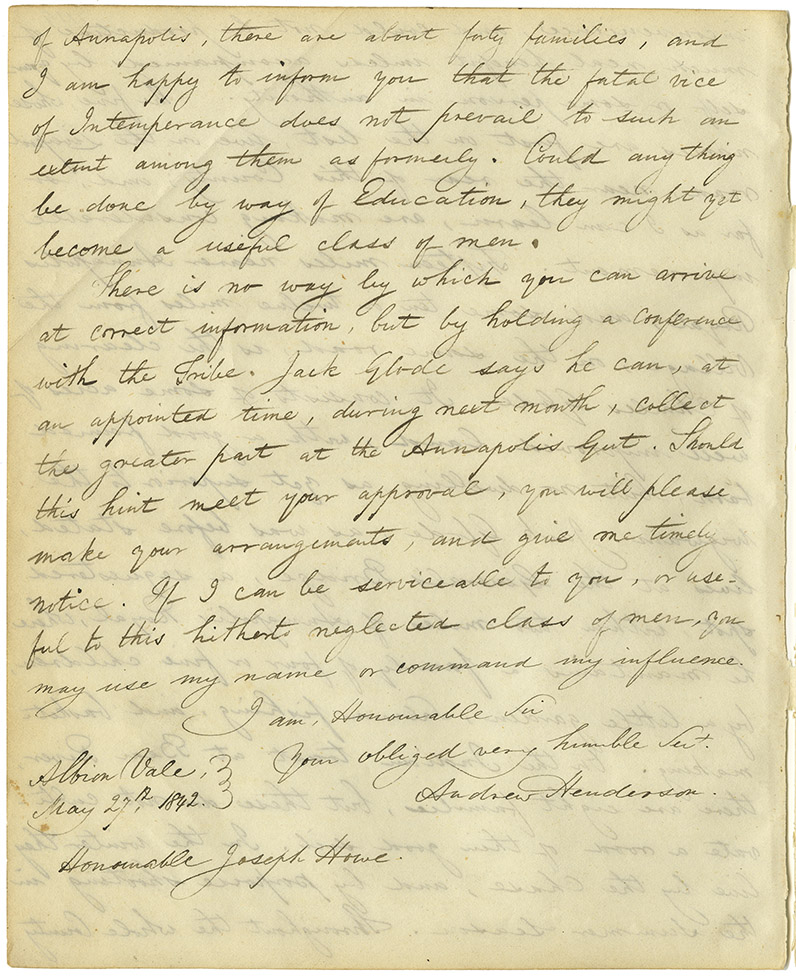 of Annapolis, there are about forty families, and
I am happy to inform you that the fatal vice
of Intemperance does not prevail to such an
extent among them as formerly. Could any thing
be done by way of Education, they might yet
become a useful class of men.
There is no way by which you can arrive
at correct information, but by holding a conference
with the Tribe. Jack Glode says he can, at
an appointed time, during next month, collect
the greater part at the Annapolis Gut. Should
this hint meet your approval, you will please
make your arrangements, and give me timely
notice. If I can be serviceable to you, or use-
ful to this hitherto neglected class of men, you
may use my name or command my influence.
I am, Honourable Sir
Your obliged very humble Sert.
Albion Vale,
Andrew Henderson.
May 27th, 1842.
Honourable Joseph Howe.